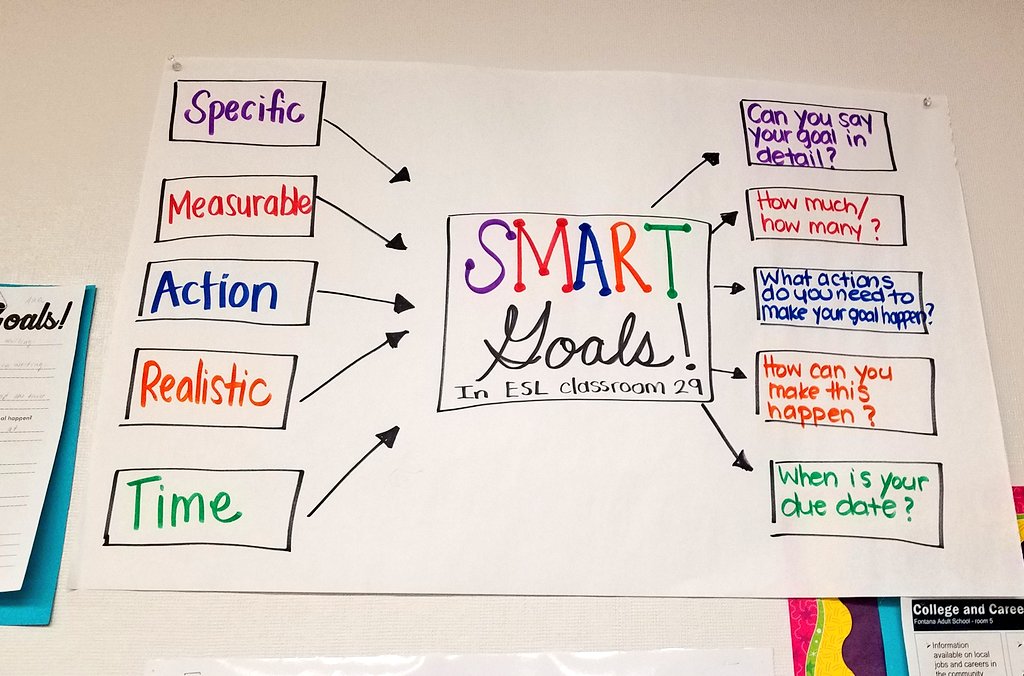 Specific
Measurable
Action
Realistic
Time
SMART
Goals!
In ESL classroom 29
Can you say
your goal in
detail?
How much/
how many?
What actions
do you need to
make your goal happen?
How can you
make this
happen?
When is your
due date?
Goals!
College and Caree
Fontana Adult School - room 5
Information
available on local
jobs and careers in
the community